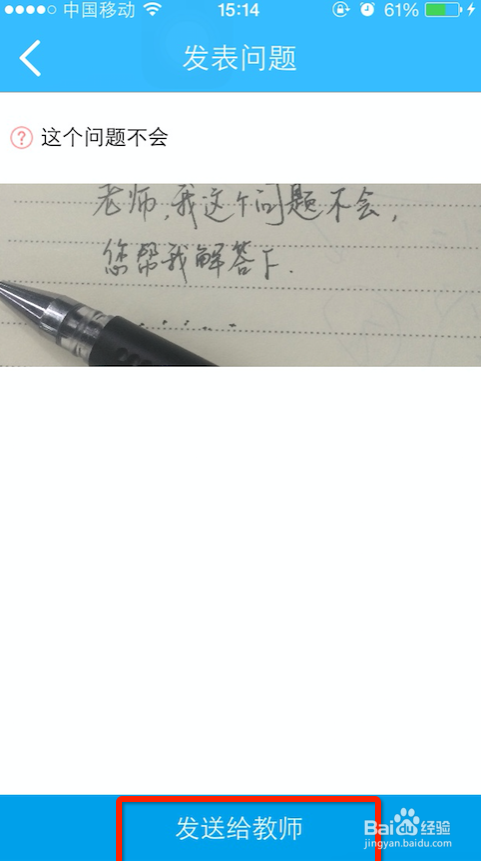 中国移动 15:14 61%
发表问题
这个问题不会
老师,我这个问题不会,
您帮我解答下.
发送给教师
Baidu经验
jingyan.baidu.com